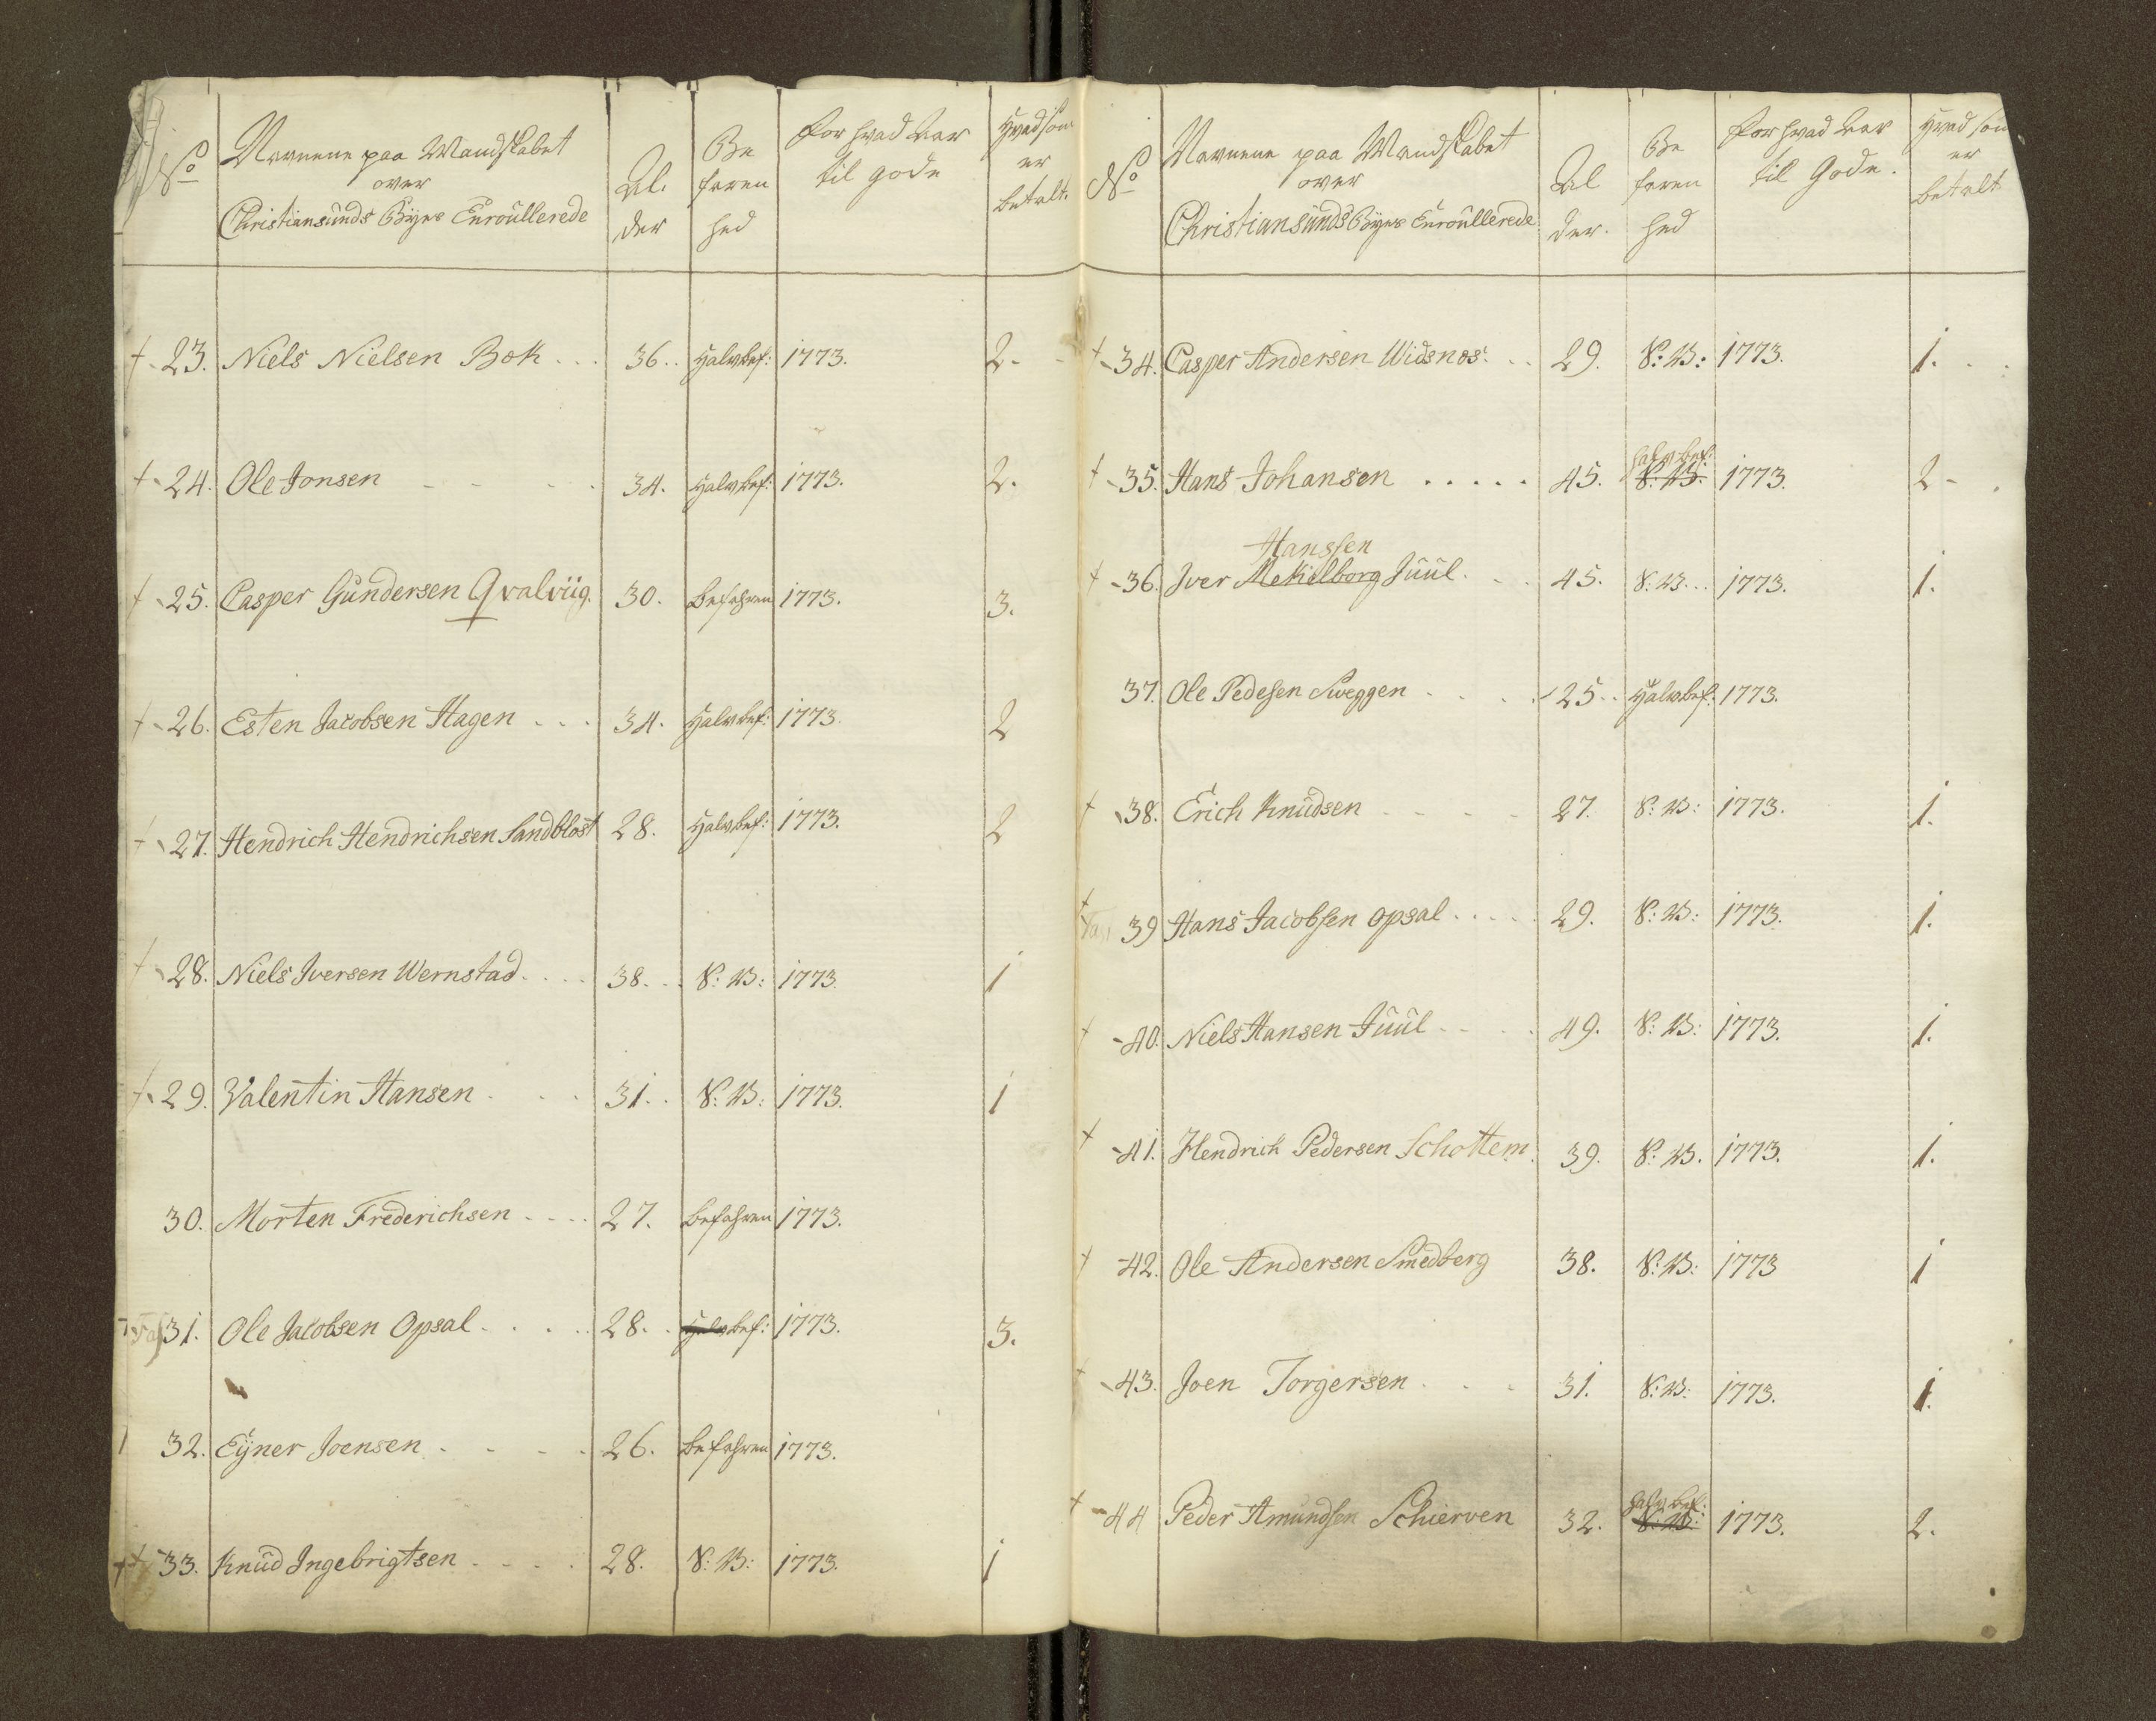 No Navnene paa Mandskabet over Christiansunds Byes Enroullerede Alder Befarenhed For hvad Aar til gode Hvad som er betalt.
† 23. Niels Nielsen Bok . . . 36. . Halvbef: 1773. 2.
† 24. Ole Jonsen 34. Halvbef: 1773. 2.
† 25. Casper Gundersen Qvalviig. 30. Befahren 1773. 3.
† 26. Esten Jacobsen Hagen . . . 34. Halvbef: 1773. 2
† 27. Hendrich Hendrichsen Sandblost 28. Halvbef: 1773. 2
† 28. Niels Iversen Wernstad . . . 38. . 1773. 1
† 29. Valentin Hansen 31. . 1773. 1
30. Morten Frederichsen . . . . 27. Befahren 1773.
31. Ole Jacobsen Opsal . . . . 28. . Halvbef: 1773. 3.
32. Eÿner Joensen . . . . 26. Befahren 1773.
†† 33. Knud Ingebrigtsen . . . . 28. 1773. 1
No Navnene paa Mandskabet over Christiansunds Byes Enroullerede Alder. Befarenhed For hvad Aar til Gode. Hvad som er betalt
† 34. Casper Andersen Widsnos . . 29. 1773. 1.
† 35. Hans Johansen . . . . . 45. halvbef: 1773. 2
Hanssen
† 36. Iver Mekelborg Juul. 45. 1773. 1.
37. Ole Pedesen Sweggen 25. . Halvbef: 1773.
† 38. Erich Knudsen 27. 1773. 1.
† 39 Hans Jacobsen Opsal . . . . 29. 1773. 1.
† 40. Niels Hansen Juul 49. 1773. 1.
† 41. Hendrich Pedersen Schottem 39. 1773. 1.
† 42. Ole Andersen Smedberg 38. 1773 1
† 43. Joen Torgersen 31. 1773. 1.
† 44 Peder Amundsen Schierven 32. halvbef: 1773. 2.